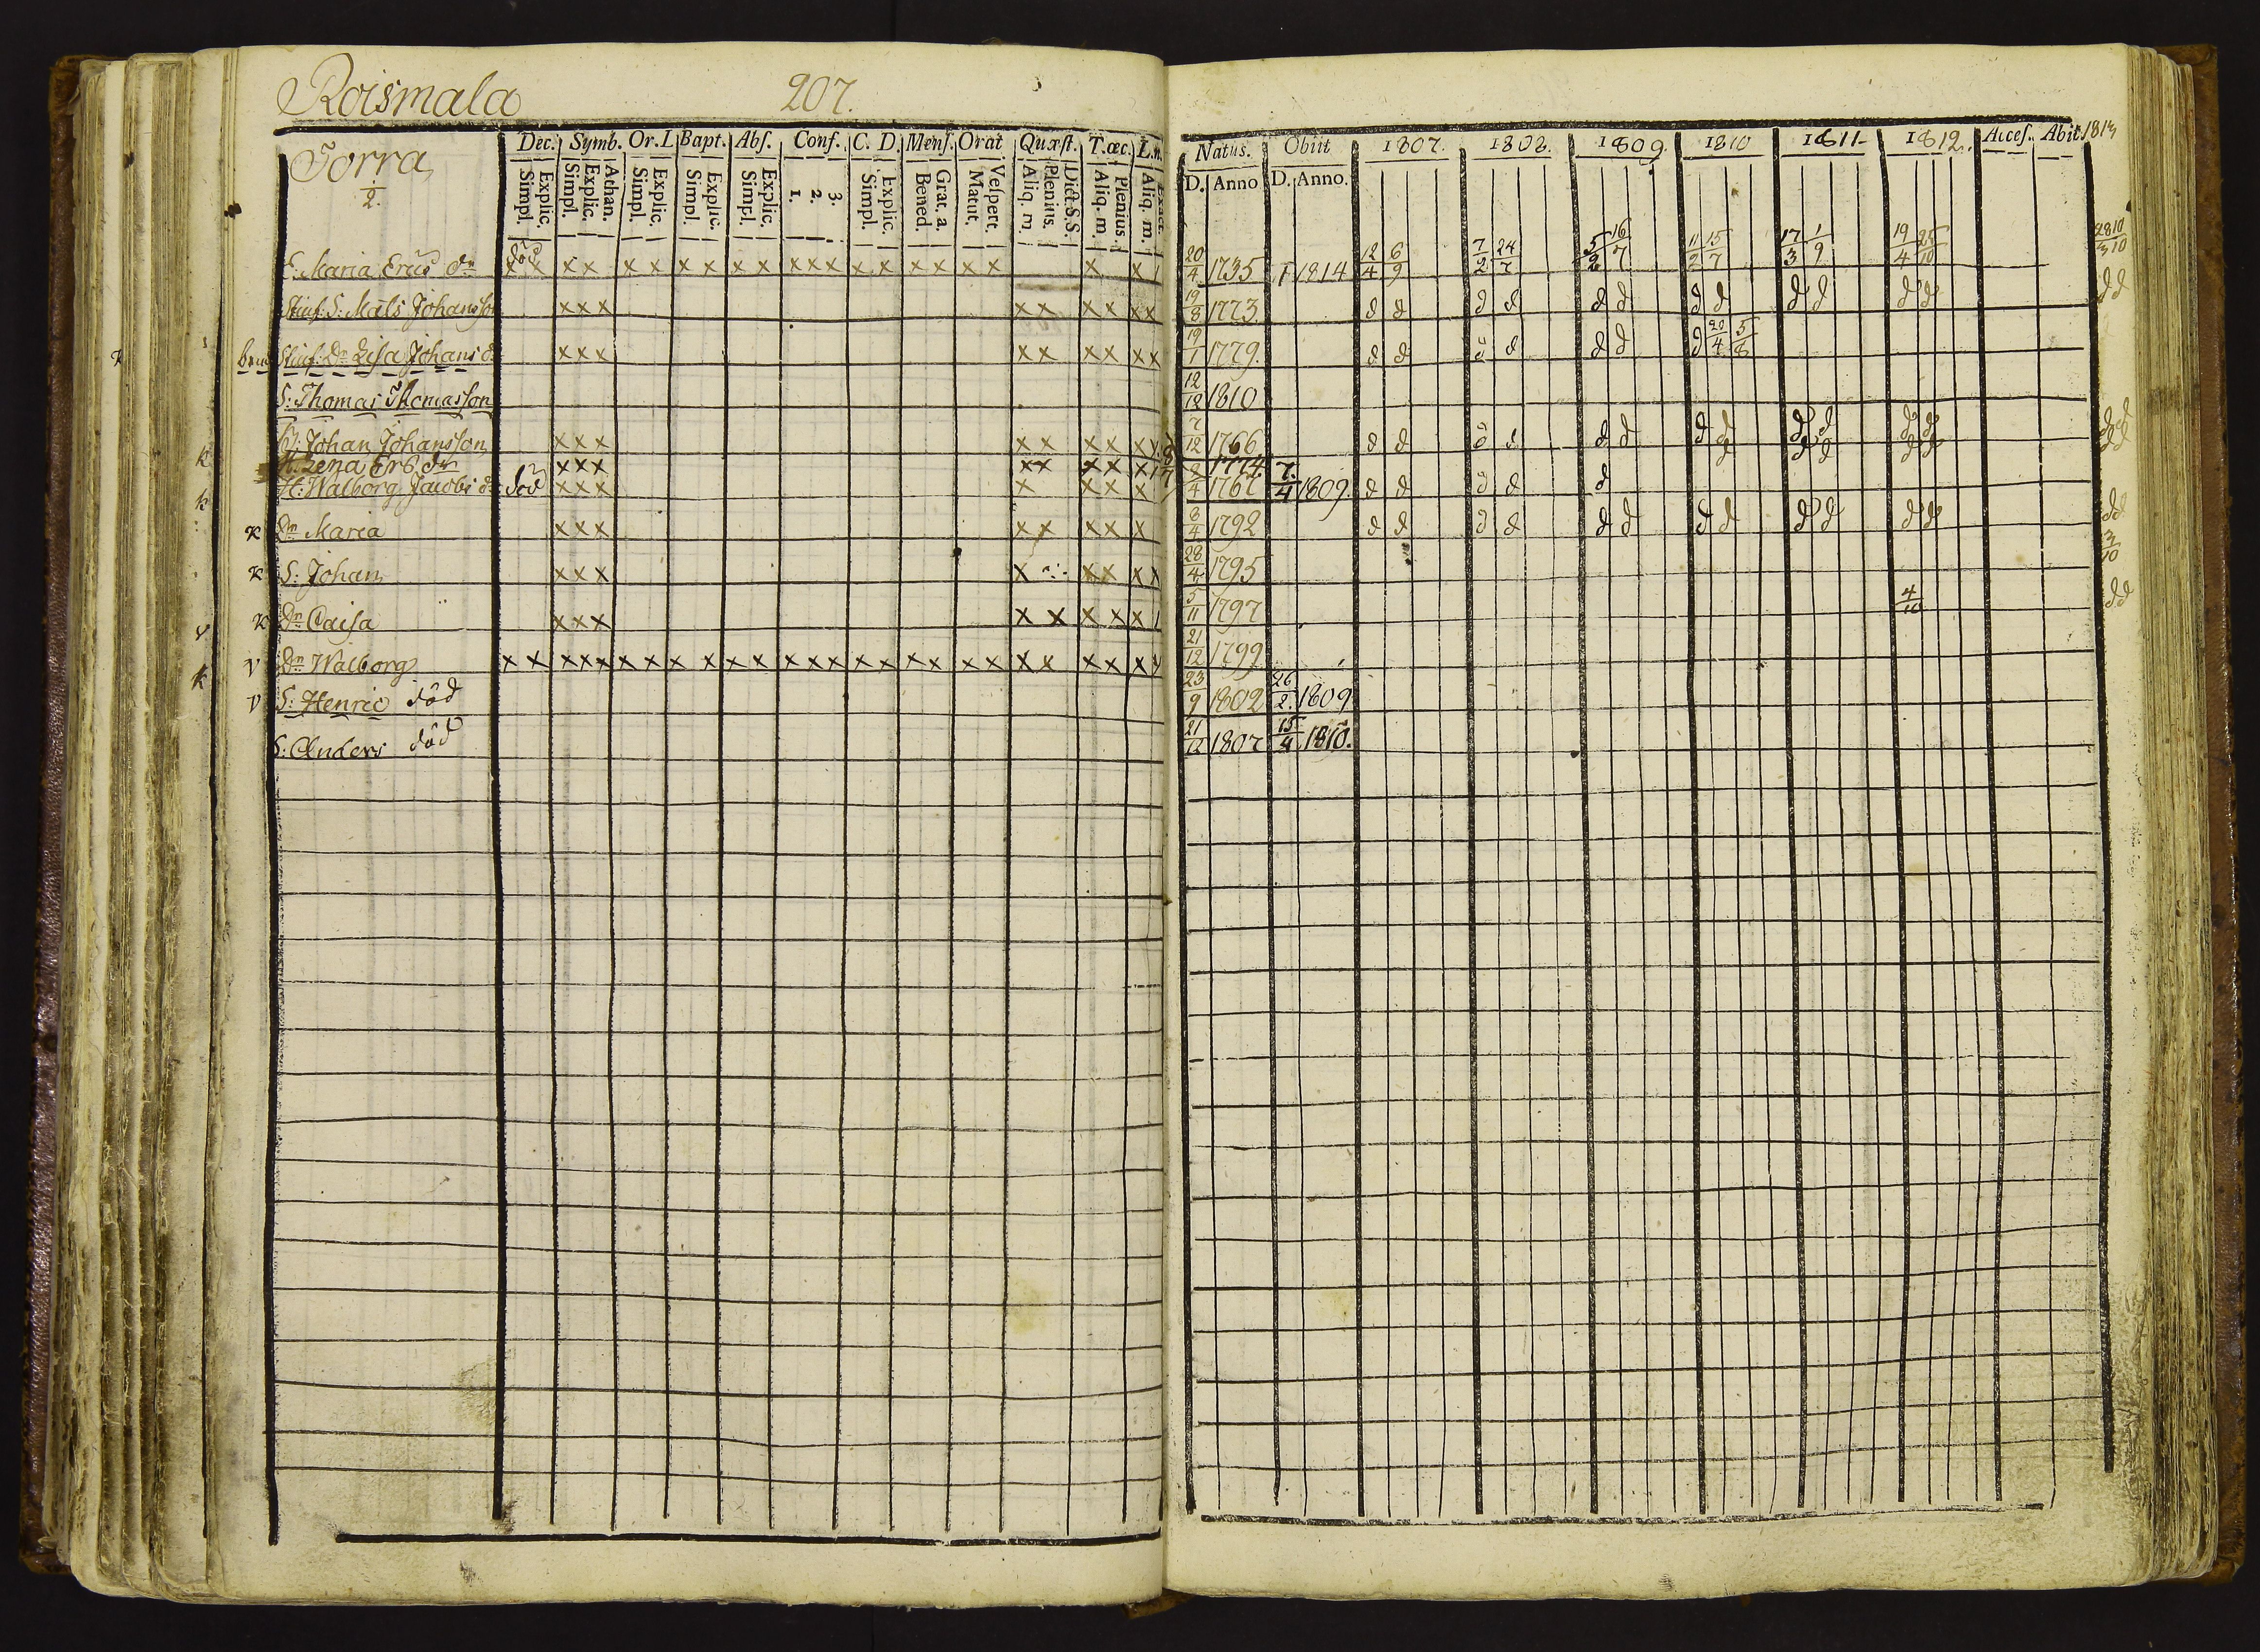 Roismala 207.
Torra
1/2.
Dec. Symb. Or. L Bapt. Abſ. Conf. C. D. Menſ. Orat Quæſt. T. œc. L. n.
Explic. Simpl. Athan. Explic. Simpl. Explic. Simpl. Explic. Simpl. Explic. Simpl. 3. 2. 1. Explic. Simpl. Grat. a. Bened. Veſpert. Matut. Dict. S. S. Plenius. Aliq. m. Plenius. Aliq. m. Aliq. m.
Natus. Obiit 1807. 1808. 1809. 1810 1811. 1812. Acceſ. Abit. 1813
D. Anno D. Anno.
död
Maria Erics dr x x x x x x x x x x x x x x x x x x x x x 20/4 1735 1814 12/4 6/9 7/2 24/7 5/2 16/7 11/2 15/7 17/3 1/9 19/4 25/10
Stiuf: S: Mats Johansson x x x x x x x x x 19/8 1773 d d d d d d d d d d d d d d
Stiuf: Dr Lisa Johans dr x x x x x x x x x 19/1 1779. d d d d d d d 29/4 5/8
S: Thomas Thomasson 12/12 1810
Johan Johansson x x x x x x x x x 7/12 1766 d d d d d d d d d d d d
k H. Lena Er. dr x x x x x x x x 1774
k H: Walborg Jacobs dr död x x x x x x x 2/4 1767 7/4 1809. d d d d d
k Dr Maria x x x x x x x x 8/4 1792 d d d d d d d d d d d d d d
k S: Johan x x x x x x x x 28/4 1795 3/10
k Dr Caisa x x x x x x x x 5/11 1797 4/10 d d
v Dr Walborg x x x x x x x x x x x x x x x x x x x x x x x x x x 21/12 1799
v S: Henric död 23/9 1802 26/2. 1809
S: Anders död 21/12 1807 15/4 1810.